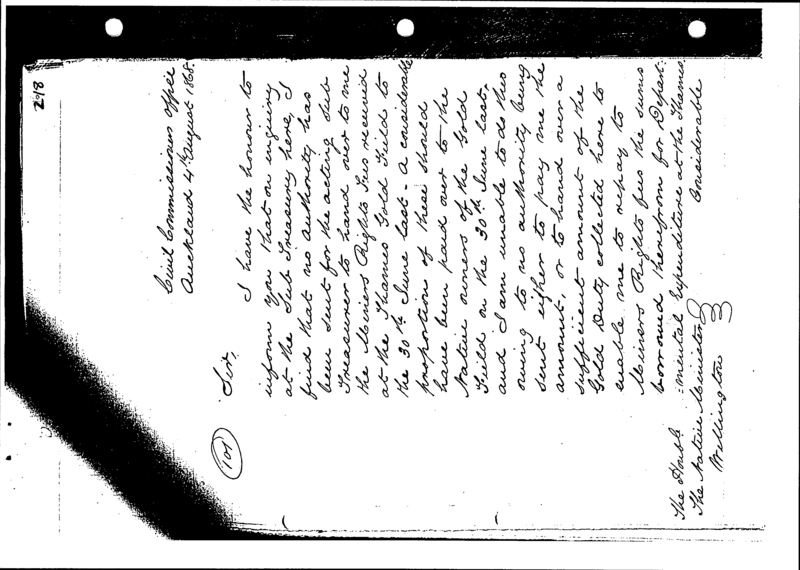 218
Civil Commissioners Office
Auckland 4th August 1868.
(101)
Sir,
I have the honour to
inform you that on enquiry
at the Sub Treasury here, I
find that no authority has
been sent for the acting Sub
Treasurer to hand over to me
the Miners Rights fees received
at the Thames Gold Field to
the 30th June last - A considerable
proportion of these should
have been paid over to the
Native owners of the Gold
Field on the 30th June last,
and I am unable to do this
owing to no authority being
sent either to pay me the
amount, or to hand over a
sufficient amount of the
Gold Duty collected here to
enable me to repay to
Miners Rights fees the sums
borrowed therefrom for Depart-
:mental Expenditure at the Thames
Considerable
The Honble
The Native Minister
Wellington